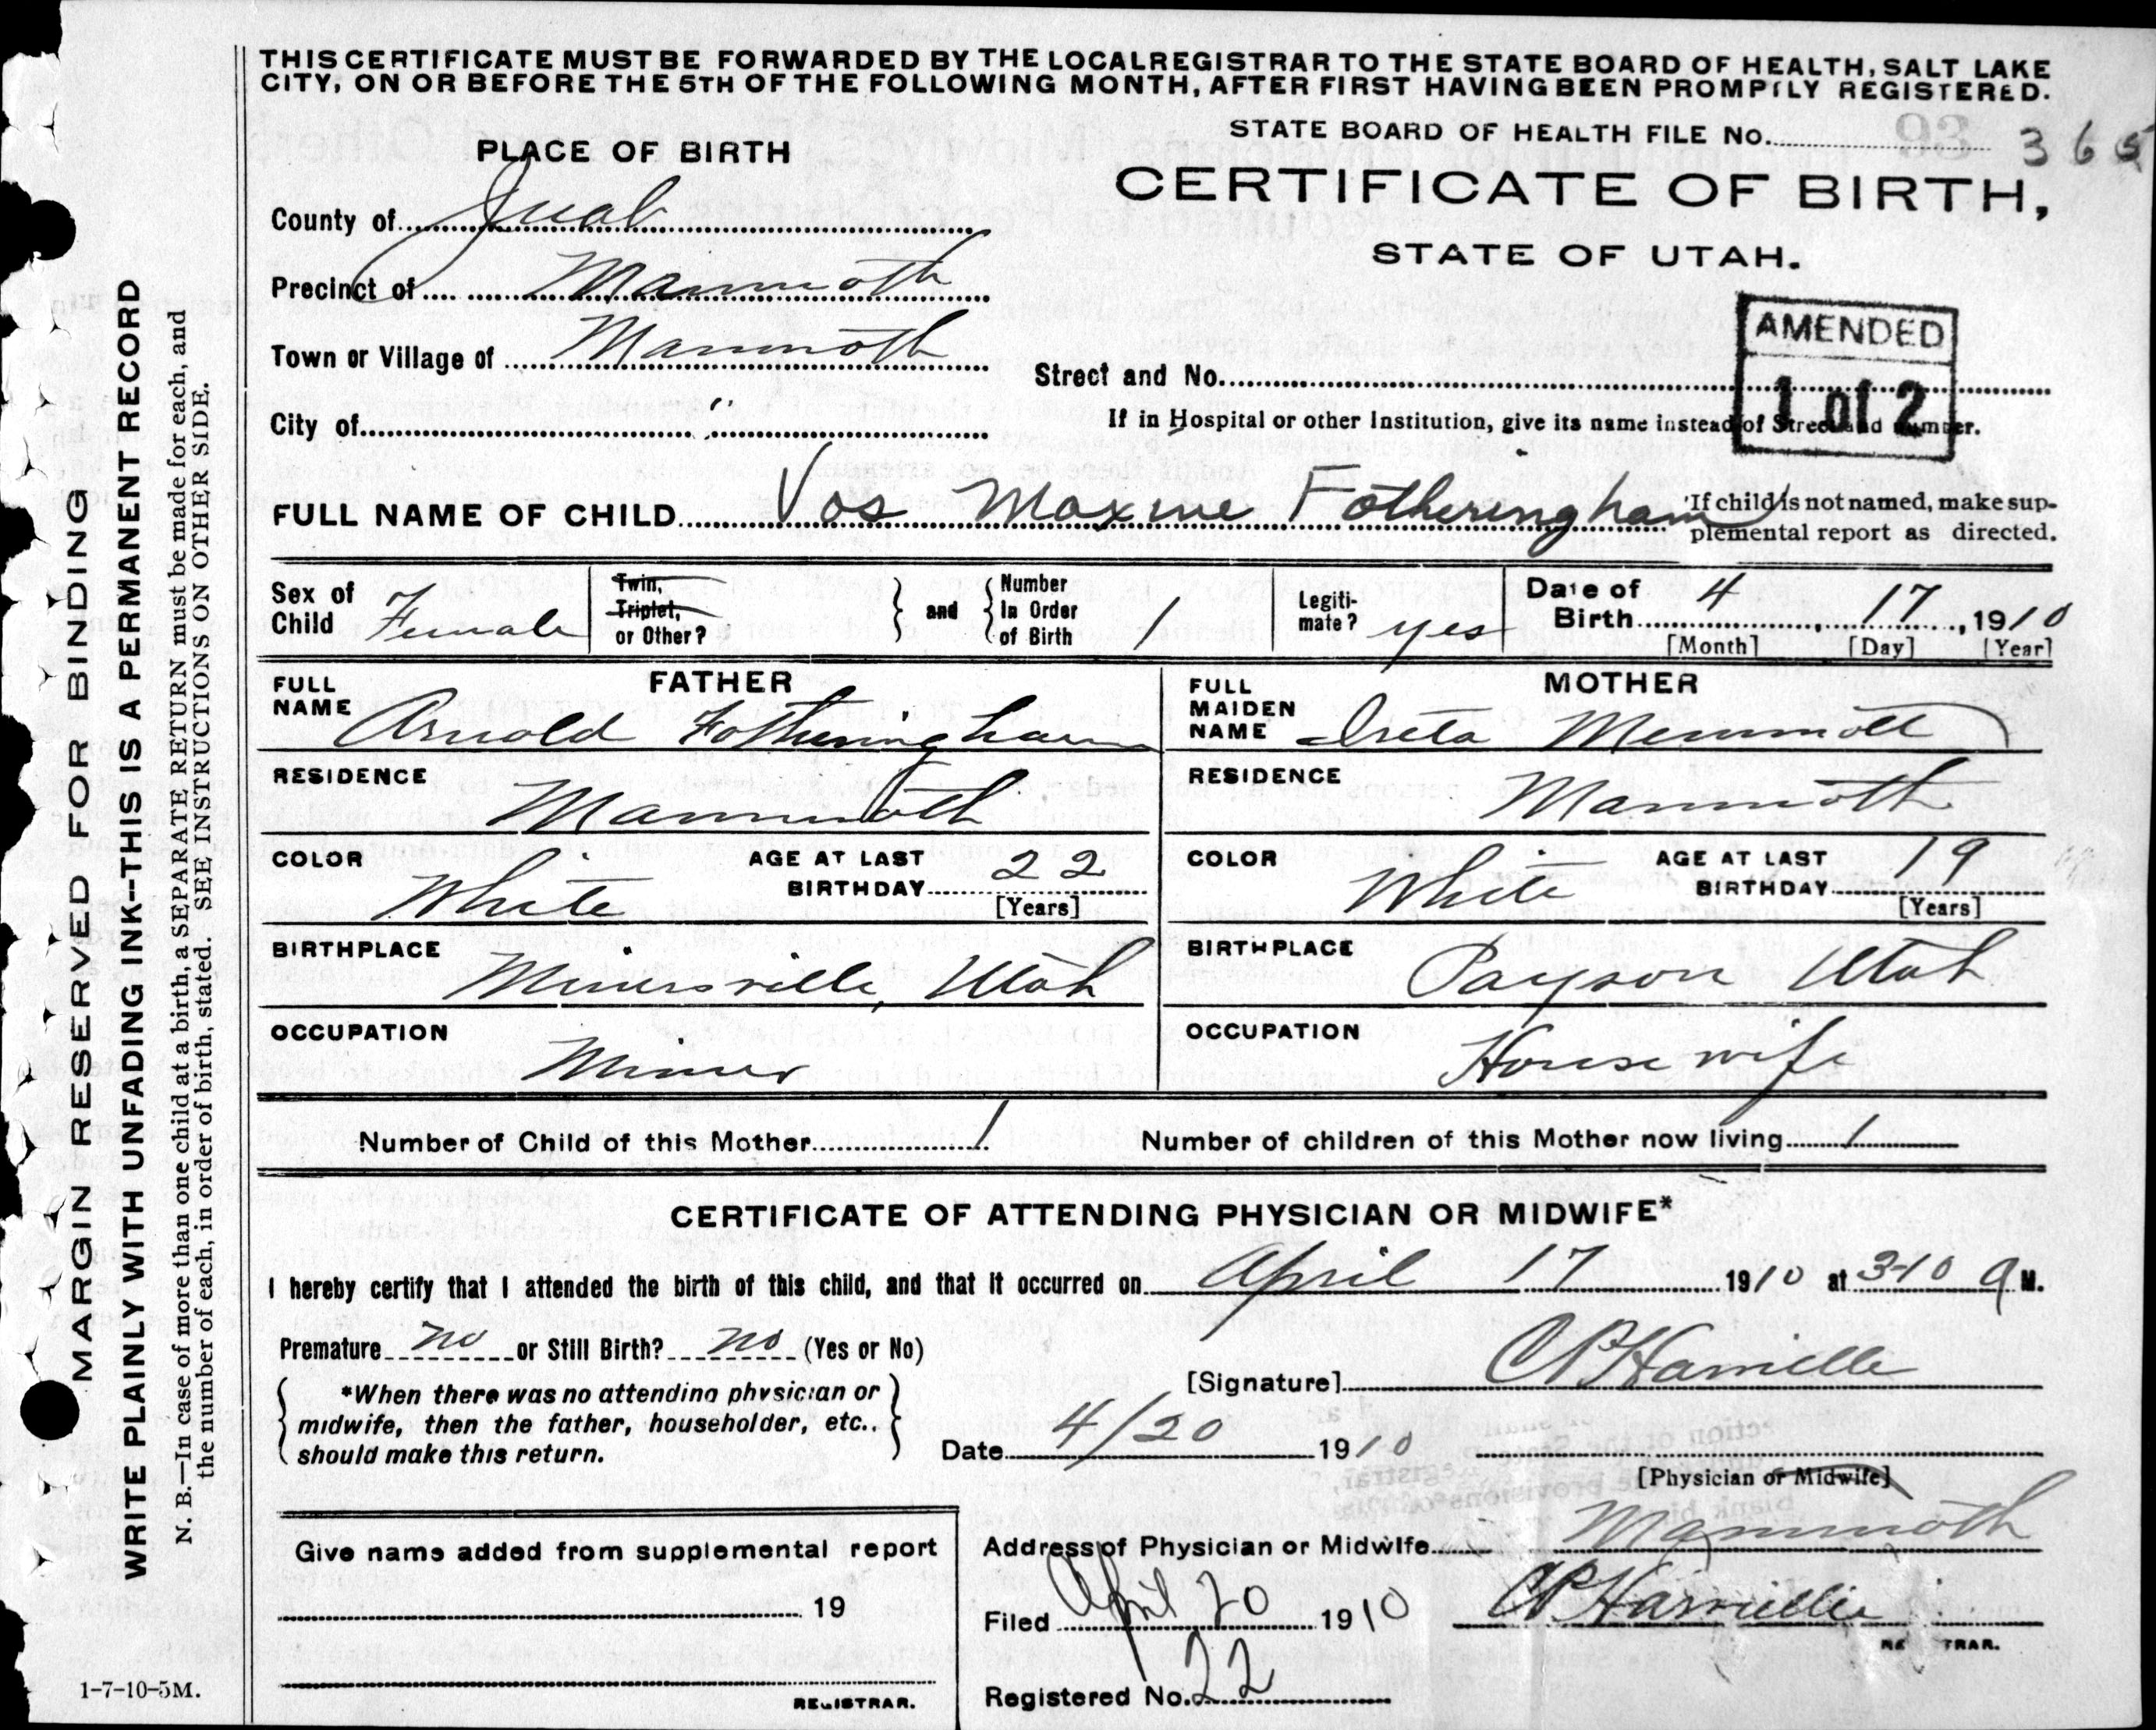 THIS CERTIFICATE MUST BE FORWARDED BY THE LOCAL REGISTRAR TO THE STATE BOARD OF HEALTH, SALT LAKE
CITY, ON OR BEFORE THE 5TH OF THE FOLLOWING MONTH, AFTER FIRST HAVING BEEN PROMPTLY REGISTERED.
STATE BOARD OF HEALTH FILE No. 93 365
PLACE OF BIRTH
CERTIFICATE OF BIRTH,
STATE OF UTAH.
County of Juab
Precinct of Mammoth
Town or Village of Mammoth
City of "
AMENDED
1 of 2
Street and No.
If in Hospital or other Institution, give its name instead of Street and number.
FULL NAME OF CHILD Vos Maxine Fotheringham
If child is not named, make sup-
plemental report as directed.
Sex of Child Female
Twin, Triplet, or Other?
and
Number In Order of Birth 1
Legiti-mate? yes
Date of Birth 4 17, 1910
[Month] [Day] [Year]
FATHER
FULL NAME Arnold Fotheringham
RESIDENCE Mammoth
COLOR White
AGE AT LAST BIRTHDAY 22
[Years]
BIRTHPLACE Minersville, Utah
OCCUPATION Miner
MOTHER
FULL MAIDEN NAME Ireta Memmott
RESIDENCE Mammoth
COLOR White
AGE AT LAST BIRTHDAY 19
[Years]
BIRTHPLACE Payson Utah
OCCUPATION Housewife
Number of Child of this Mother 1
Number of children of this Mother now living 1
CERTIFICATE OF ATTENDING PHYSICIAN OR MIDWIFE*
I hereby certify that I attended the birth of this child, and that it occurred on April 17 1910 at 3-10 a M.
Premature no or Still Birth? no (Yes or No)
*When there was no attending physician or
midwife, then the father, householder, etc.,
should make this return.
[Signature]
Date 4/20 1910
[Physician or Midwife]
Address of Physician or Midwife Mammoth
Give name added from supplemental report
19
REGISTRAR.
Filed April 20 1910
REGISTRAR.
Registered No. 22
MARGIN RESERVED FOR BINDING
WRITE PLAINLY WITH UNFADING INK--THIS IS A PERMANENT RECORD
N. B.—In case of more than one child at a birth, a SEPARATE RETURN must be made for each, and
the number of each, in order of birth, stated. SEE INSTRUCTIONS ON OTHER SIDE.
1-7-10-5M.